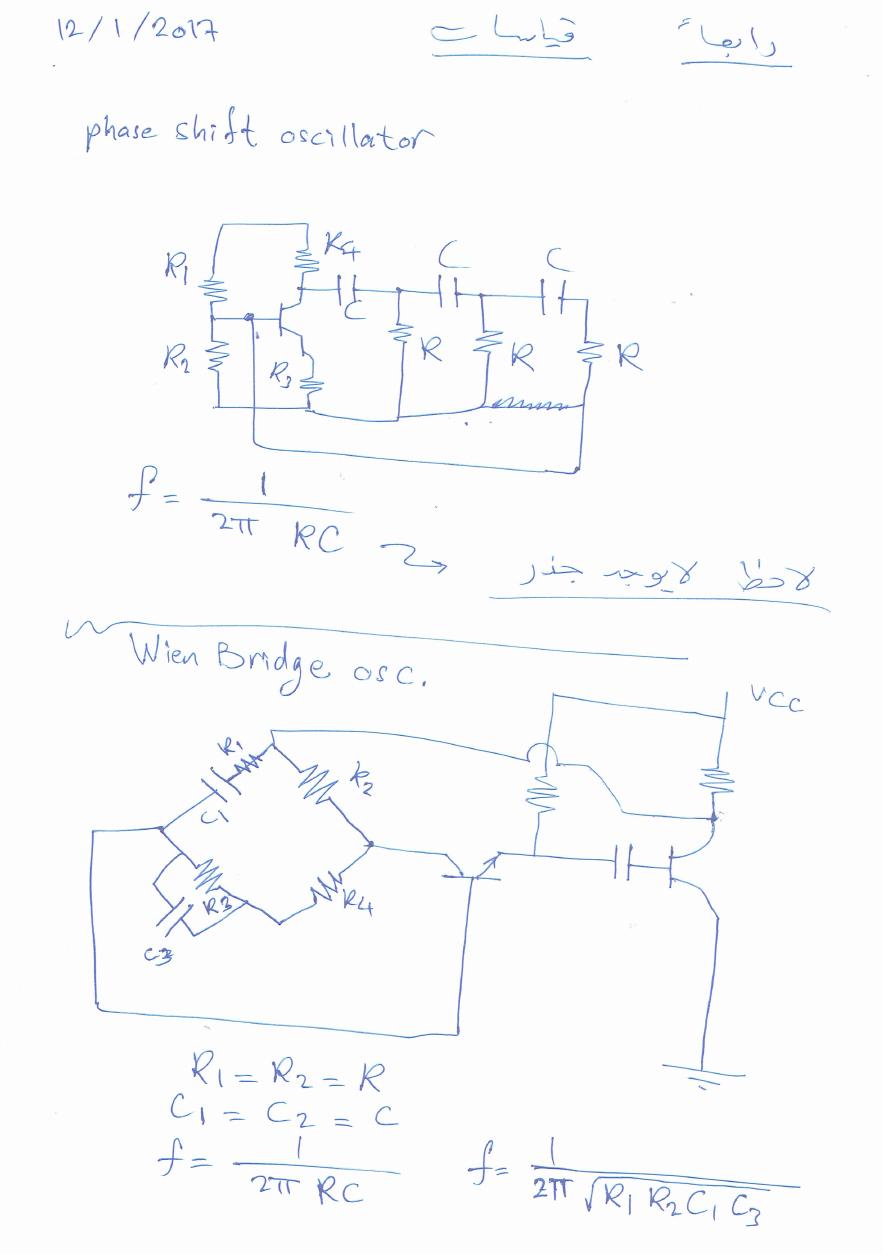 12/1/2017 قياسات رابعاً
phase shift oscillator
R1 R4 C C C
R2 R3 R R R
f = 1 / 2π RC
لاحظ لا يوجد جذر
Wien Bridge osc.
VCC
R1 R2
C1
R3 R4
C3
R1 = R2 = R
C1 = C2 = C
f = 1 / 2π RC f = 1 / 2π √R1 R2 C1 C3